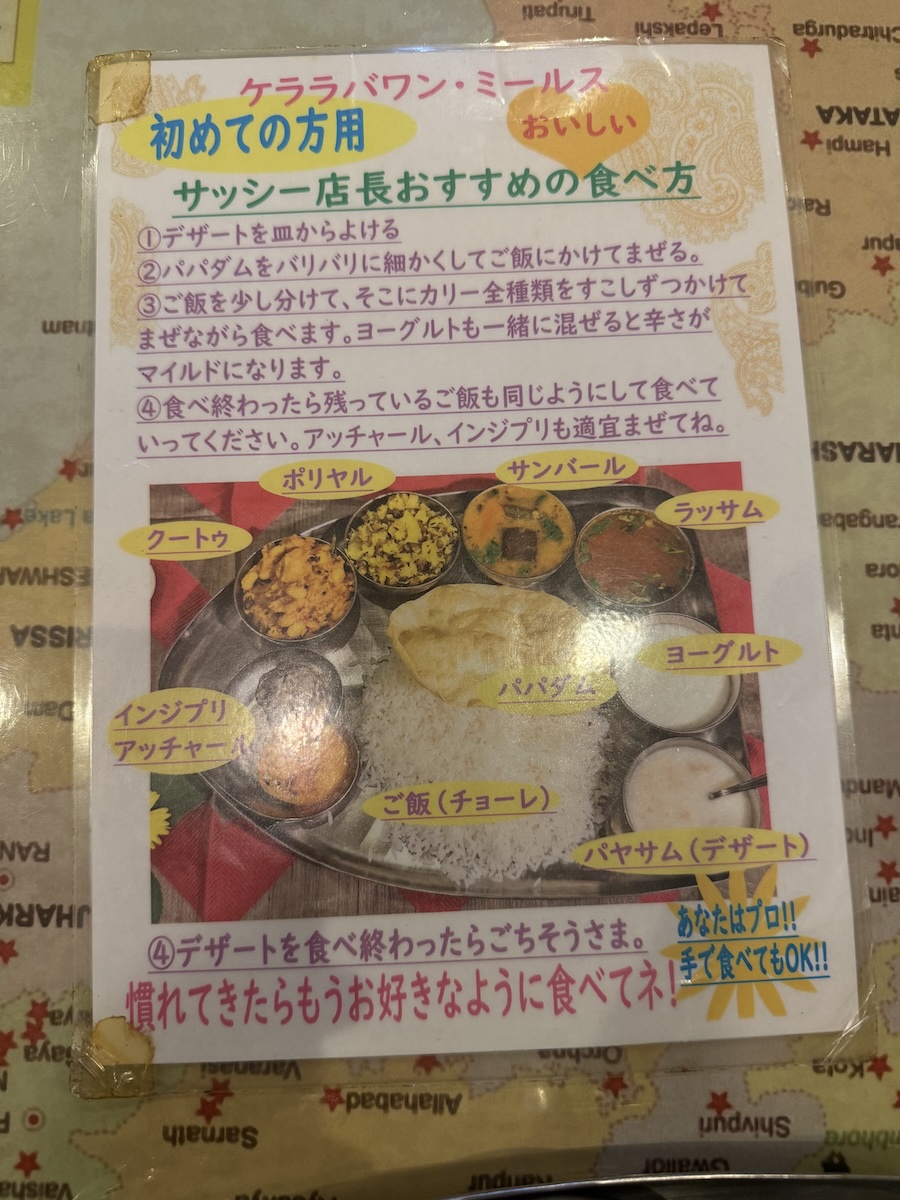 ケララバワン・ミールス
初めての方用
おいしい
サッシー店長おすすめの食べ方
①デザートを皿からよける
②パパダムをバリバリに細かくしてご飯にかけてまぜる。
③ご飯を少し分けて、そこにカリー全種類をすこしずつかけて
まぜながら食べます。ヨーグルトも一緒に混ぜると辛さが
マイルドになります。
④食べ終わったら残っているご飯も同じようにして食べて
いってください。アッチャール、インジプリも適宜まぜてね。
ポリヤル
サンバール
ラッサム
クートゥ
ヨーグルト
パパダム
インジプリ
アッチャール
ご飯(チョーレ)
パヤサム(デザート)
④デザートを食べ終わったらごちそうさま。
あなたはプロ!!
手で食べてもOK!!
慣れてきたらもうお好きなように食べてネ!
Tirupati
Lepakshi
Chitradurga
ATAKA
Hampi
RISSA
JHARK
Gaya
Varanasi
Orchha
Kota
Allahabad
Sarnath
Shivpuri
Gwalior
Vaisha